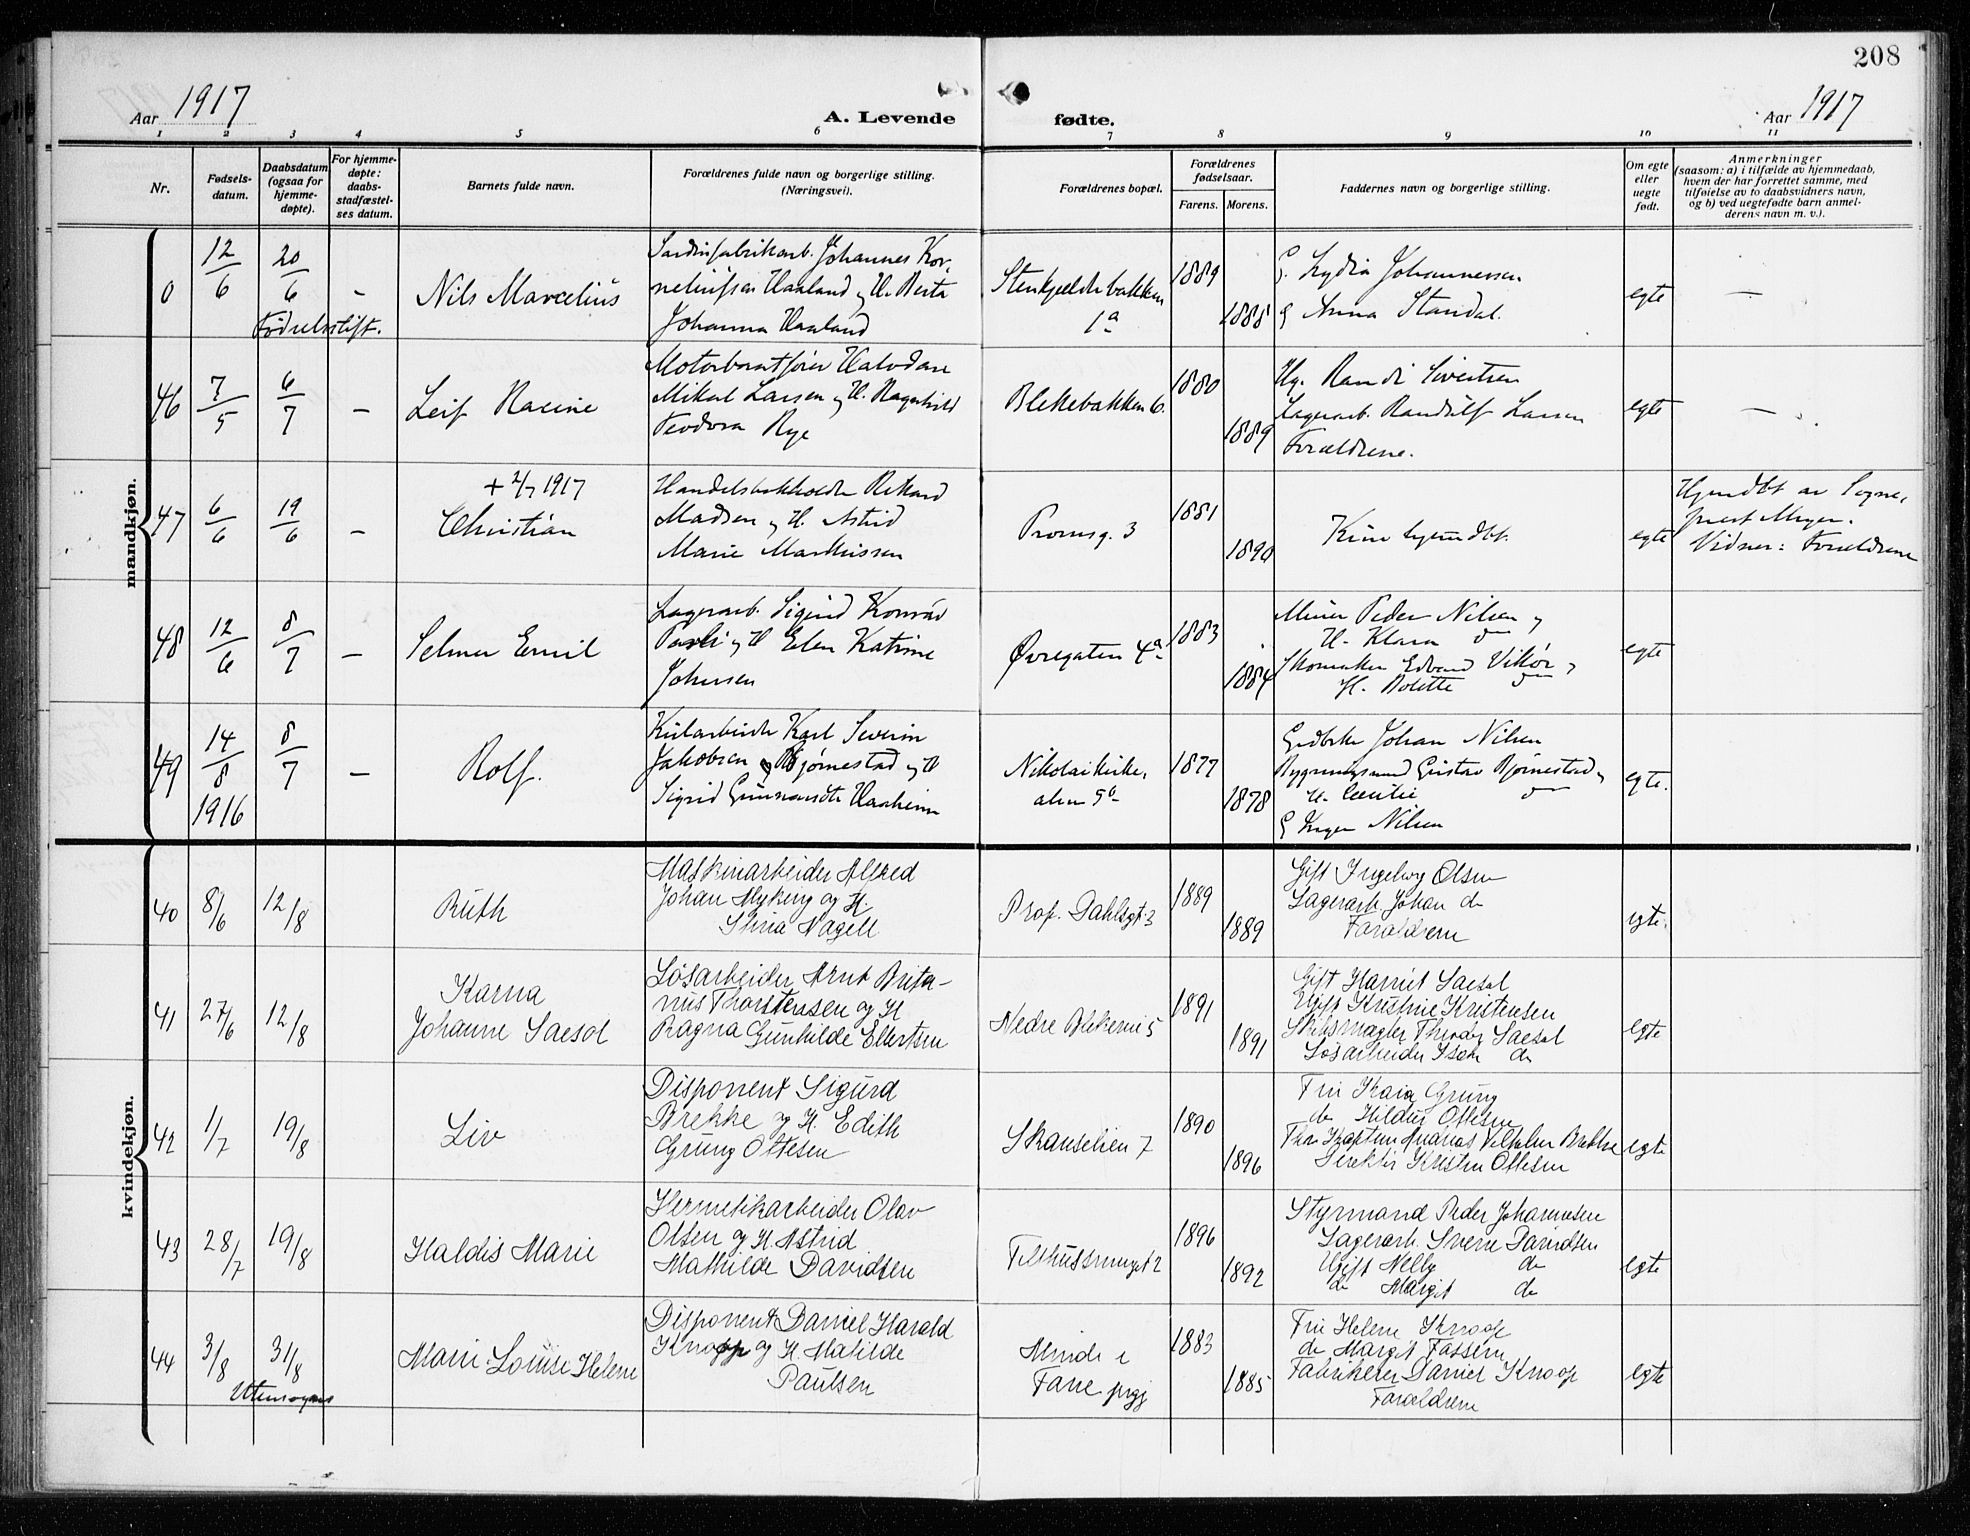 208
Aar 1917
A. Levende
fødte.
Aar 1917
1 2 3 4 5 6 7 8 9 10 11
Nr.
Fødsels-
datum.
Daabsdatum
(ogsaa for
hjemme-
døpte).
For hjemme-
døpte:
daabs-
stadfæstel-
ses datum.
Barnets fulde navn.
Forældrenes fulde navn og borgerlige stilling.
(Næringsvei).
Forældrenes bopæl.
Forældrenes
fødselsaar.
Farens.
Morens.
Faddernes navn og borgerlige stilling.
Om egte
eller
uegte
født.
Anmerkninger
(saasom: a) i tilfælde av hjemmedaab,
hvem der har forrettet samme, med
tilføielse av to daabsvidners navn,
og b) ved uegtefødte barn anmel-
derens navn m. v.).
mandkjøn.
0
12/6
20/6
-
Fødselsstift.
Nils Marcelius
Sardinfabrikarb. Johannes Kor-
neliussen Haaland og H. Berta
Johanna Haaland
Stenkjeldebakken
1a
1889
1888
G. Lydia Johannessen
G Anna Standal.
egte
—
46
7/5
6/7
-
Leif Racine
Motorbaatfører Halvdan
Mikal Larsen og H. Ragnhild
Teodora Rye
Blekebakken 6.
1880
1889
Ug. Randi Sivertsen
Lagerarb. Randulf Larsen
Forældrene.
egte
—
47
6/6
19/6
-
+ 2/7 1917
Christian
Handelsbokholder Rikard
Madsen og H. Astrid
Marie Markussen
Promsg. 3
1881
1890
Kun hjemdbt.
egte
Hjemdbt av Sogne-
prest Meyer.
Vidner: Forældrene
48
12/6
8/7
-
Selmer Emil
Lagerarb. Sigurd Konrad
og H Elen Katrine
Johnsen
Øvregaten 4a
1883
1884
Murer Peder Nilsen og
H. Klara do
Skomaker Edvard Vikør og
H. Bolette do
egte
49
14/8
1916
8/7
-
Rolf.
Kularbeider Karl Severin
Jakobsen Bjørnestad og H
Sigrid Haaheim
Nikolaikirke-
alm 5b
1877
1878
Johan Nilsen
Gustav Bjørnestad og
H. Cecilie do
G Inger Nilsen
egte.
kvindekjøn.
40
8/6
12/8
Ruth
Maskinarbeider Alfred
Johan Myking og H.
Stina Nagell
Prof. Dahlsgt. 3
1889
1889
Gift Ingeborg Olsen
Lagerarb. Johan do
Forældrene
egte.
41
27/6
12/8
Karna
Johanne Saesol
Løsarbeider Arnt Brita-
nus Thorstensen og H
Ragna Gunhilde Ellertsen
Nedre Blekevei 5
1891
1891
Gift Harriet Saesol
Ugift Kristine Kristensen
Skibsmægler Theodor Saesol
Løsarbeider Isak do
egte
42
1/7
19/8
Liv
Disponent Sigurd
Brekke og H. Edith
Grung Ottesen
Skanselien 7
1890
1896
Fru Kaia Grung
do Hildur Ottesen
Kaptein Andreas Brekke
Direktør Kristen Ottesen
egte
43
28/7
19/8
Haldis Marie
Hermetikarbeider Olav
Olsen og H. Astrid
Mathilde Davidsen
Tolthussmuget 2
1896
1892
Styrmand Peder Johannesen
Lagerarb. Sverre Davidsen
Ugift Nelly do
do Margit do
egte
44
3/8
31/8
Utensogns
Marie Louise Helene
Disponent Daniel Harald
Knoop og H. Matilde
Paulsen
Minde i
Fane prgj
1883
1885
Fru Helene Knoop
do Margit Fassem
Fabrikeier Daniel Knoop
Forældrene
egte